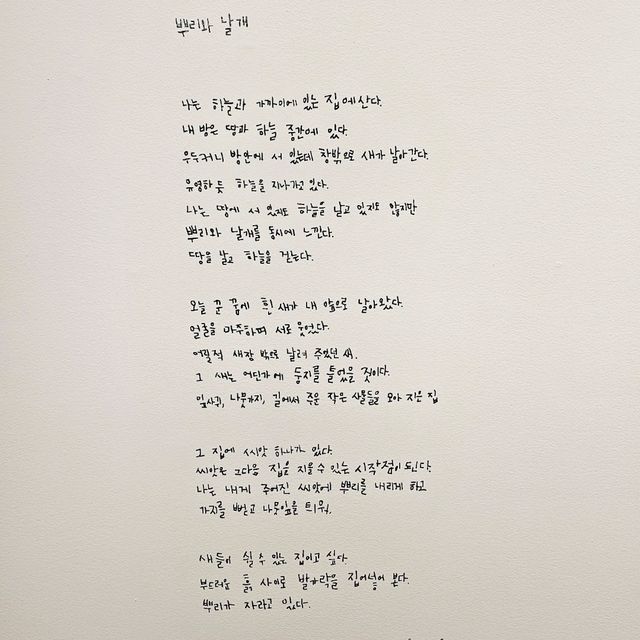 뿌리와 날개
나는 하늘과 가까이에 있는 집에산다.
내 방은 땅과 하늘 중간에 있다.
우두커니 방안에 서 있는데 창밖으로 새가 날아간다.
유영하듯 하늘을 지나가고 있다.
나는 땅에 서 있지도 하늘을 날고 있지도 않지만
뿌리와 날개를 동시에 느낀다.
땅을 날고 하늘을 걷는다.
오늘 꾼 꿈에 흰 새가 내 앞으로 날아왔다.
얼굴을 마주하며 서로 웃었다.
어릴적 새장 밖으로 날려 주었던 새.
그 새는 어딘가에 둥지를 틀었을 것이다.
잎사귀, 나뭇가지, 길에서 주운 작은 사물들을 모아 지은 집
그 집에 씨앗 하나가 있다.
씨앗은 그다음 집을 지을 수 있는 시작점이 된다.
나는 내게 주어진 씨앗에 뿌리를 내리게 하고
가지를 뻗고 나뭇잎을 틔워,
새들이 쉴 수 있는 집이고 싶다.
부드러운 흙 사이로 발가락을 집어넣어 본다.
뿌리가 자라고 있다.